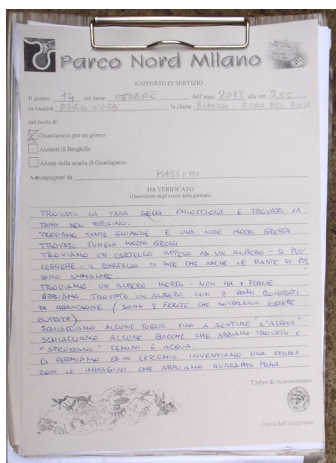 Parco Nord Milano
RAPPORTO DI SERVIZIO
Il giorno 14 del mese OTTOBRE dell'anno 2013 alle ore 9.55
in località PARCO NORD la classe BIANCO CINO DEL DUCA
nel ruolo di:
Guardaparco per un giorno
Alunni di Brughello
Alunni della scuola di Guardaparco
Accompagnati da MASSIMO
HA VERIFICATO
(Descrizione degli eventi della giornata)
TROVATO LA TANA DELLA CHIOCCIOLA E TROVATO LA
TANA DEL
TROVIAMO TANTE GHIANDE E UNA NOCE MOLTO GROSSA
TROVATO FUNGHO MOLTO GROSSO
TROVIAMO UN CARTELLO APPESO AD UN ALBERO - SI PUO'
LEGGERE - IL CARTELLO CI DICE CHE ANCHE LE PIANTE DI
SONO
TROVIAMO UN ALBERO MORTO - NON HA + FOGLIE
ABBIAMO TROVATO UN ALBERO CON 2 RAMI COLORATI
DI ARANCIONE (SONO 2 FERITE CHE DOVRANNO ESSERE
CURATE).
SCHIACCIAMO ALCUNE FOGLIE FINO A SENTIRE "L'ACQUA"
SCHIACCIAMO ALCUNE BACCHE CHE ABBIAMO TROVATO E
"SPRUZZANO" SEMINI E ACQUA
CI FERMIAMO ED IN CERCHIO INVENTIAMO UNA STORIA
CON LE IMMAGINI CHE ABBIAMO GUARDATO PRIMA
Timbro di riconoscimento
Firma dell'insegnante